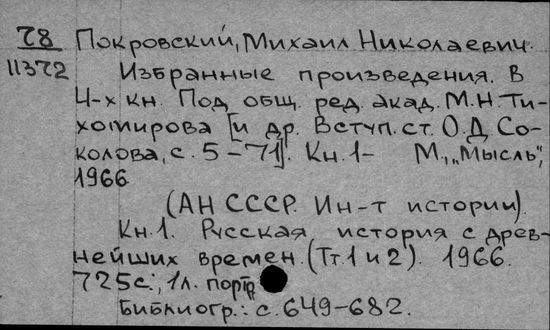 78 Покровский, Михаил Николаевич.
11372 Избранные произведения. В
4-х кн. Под общ. ред. акад. М.Н. Ти-
хомирова [и др. Вступ. ст. О.Д. Со-
колова, с. 5-71]. Кн. 1- М., „Мысль",
1966
(АН СССР. Ин-т истории).
Кн. 1. Русская история с древ-
нейших времен. (Тт. 1 и 2). 1966.
725с., 1л. портр.
Библиогр.: с. 649-682.